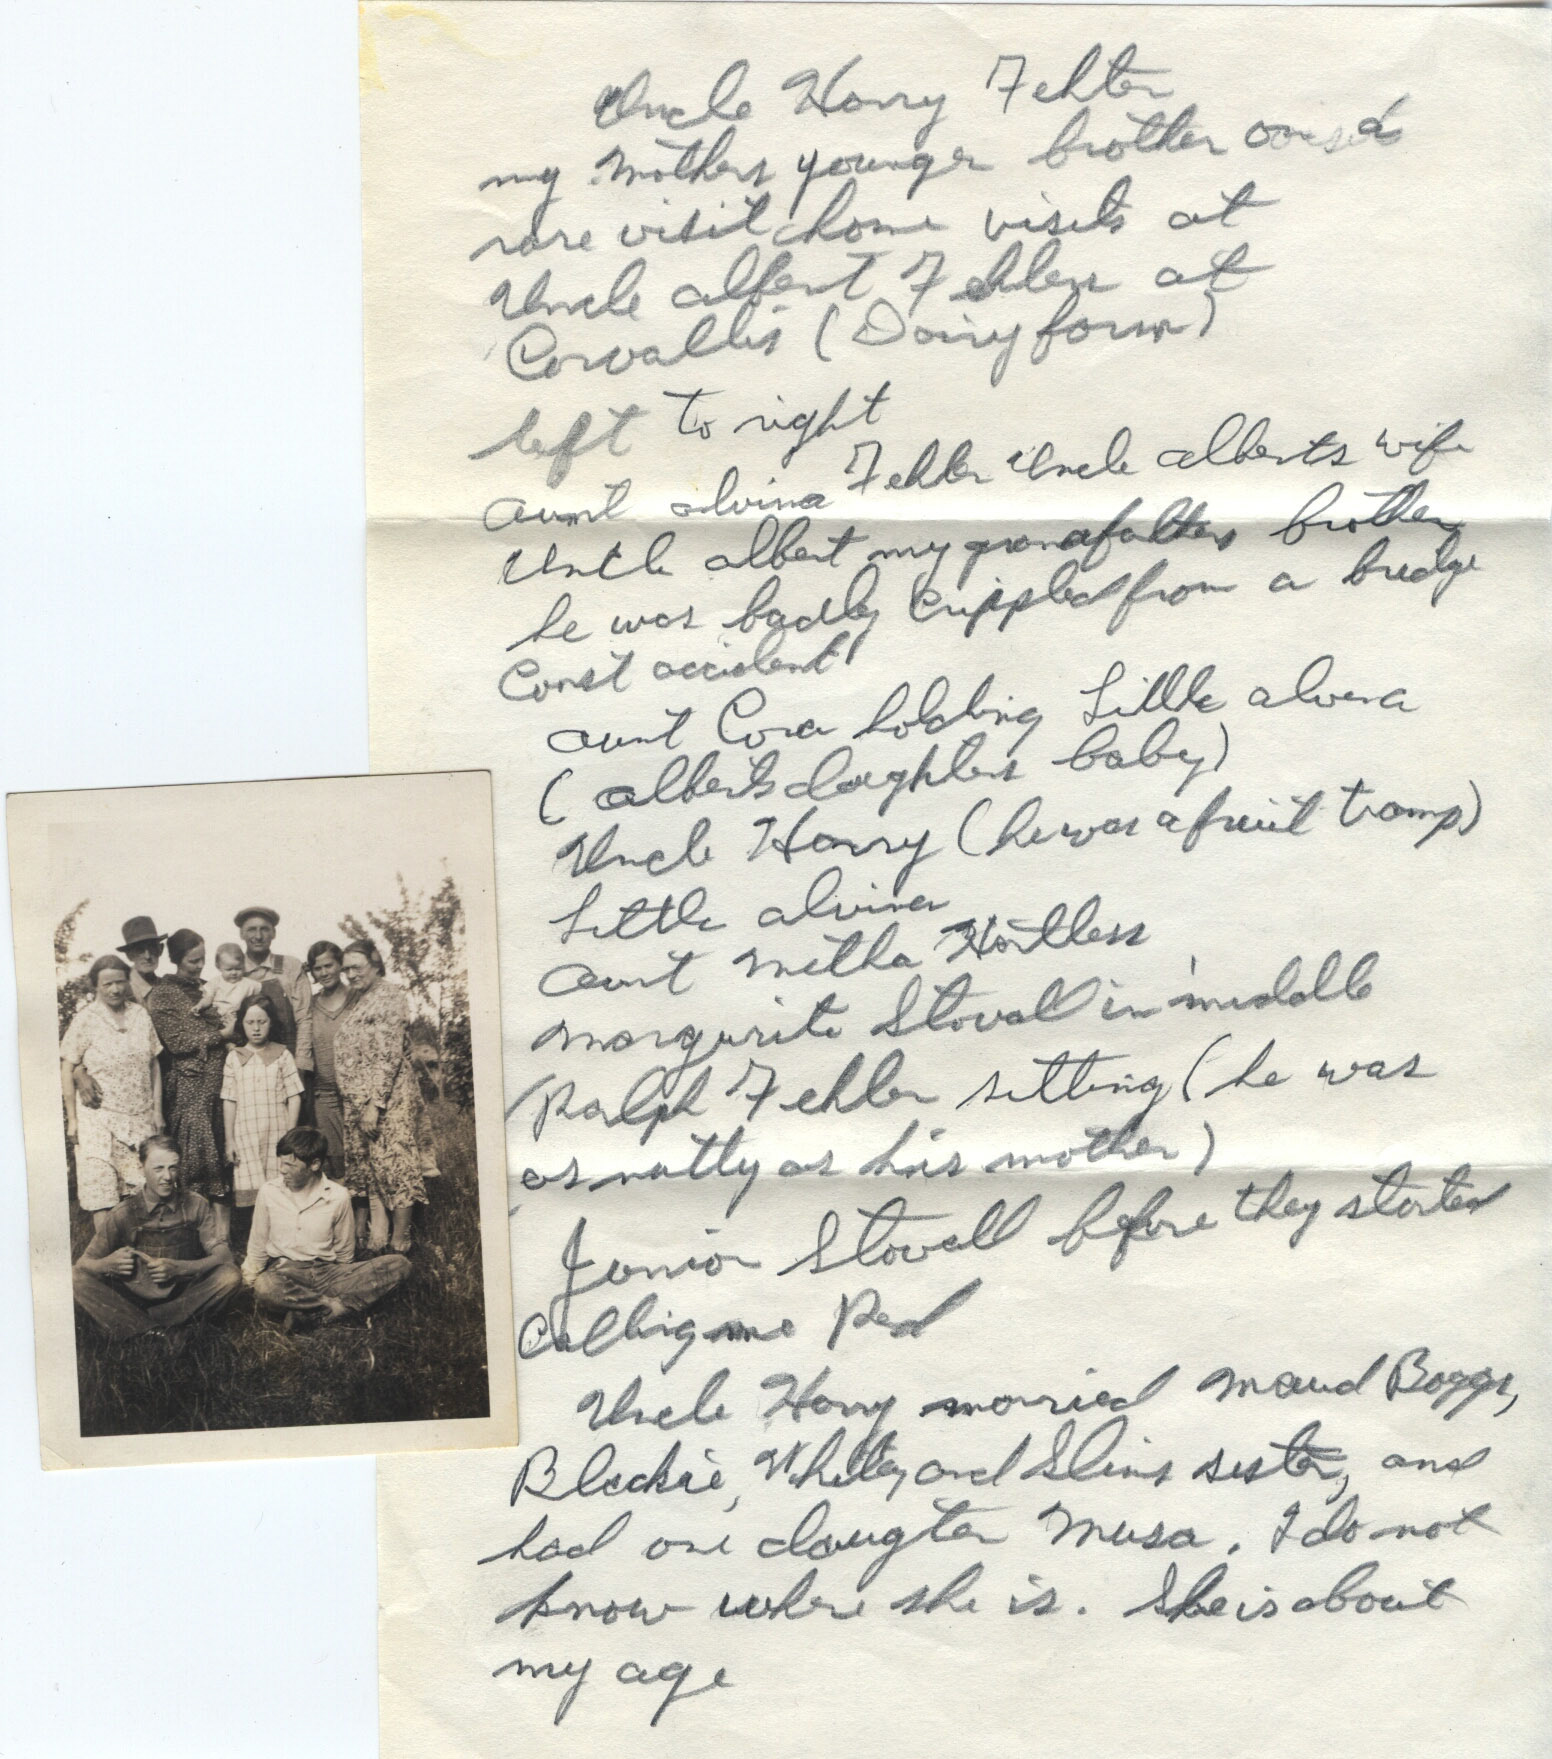 Uncle Harry Fehler
my Mothers younger brother on a
rare visit home visits at
Uncle Albert Fehlers at
Corvallis (Dairy farm)
left to right
aunt alvina Fehler Uncle alberts wife
Uncle albert my grandfathers brother
he was badly crippled from a bridge
Const accident
aunt Cora holding Little alvera
(alberts daughters baby)
Uncle Harry (he was a fruit tramp)
Little alvina
aunt Metha Hartless
Margurite Stovall in middle
Ralph Fehler sitting (he was
as nutty as his mother)
Junior Stovall before they started
Calling me Red
Uncle Harry married Maud Boggs,
Blackie, Whitey and Slims sister, and
had one daugter Musa. I do not
know where she is. She is about
my age